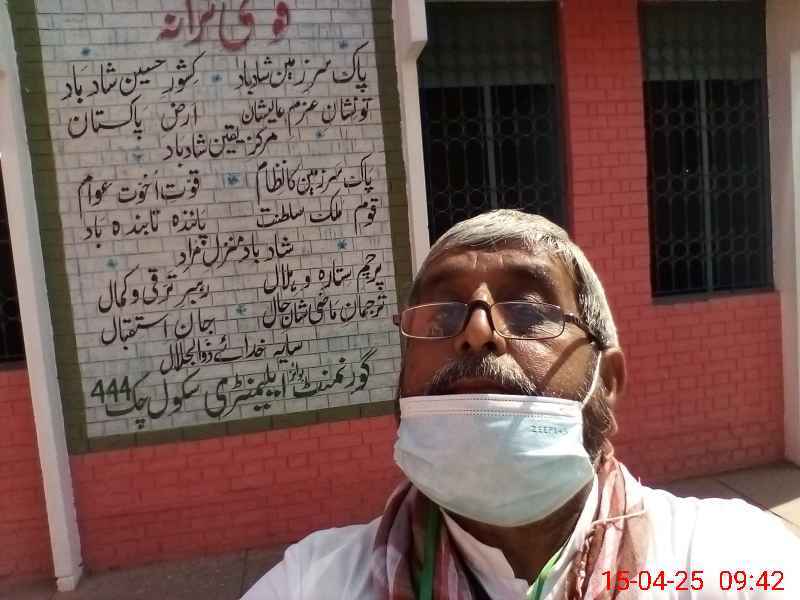 قومی ترانہ
پاک سرزمین شادباد کشور حسین شادباد
تو نشان عزم عالیشان ارض پاکستان
مرکز یقین شادباد
پاک سرزمین کا نظام قوت اخوت عوام
قوم ملک سلطنت پائندہ تابندہ باد
شاد باد منزل مراد
پرچم ستارہ و ہلال رہبر ترقی و کمال
ترجمان ماضی شان حال جان استقبال
سایہ خدائے ذوالجلال
گورنمنٹ بوائز ایلیمنٹری سکول چک 444
15-04-25 09:42